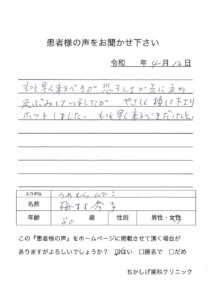 患者様の声をお聞かせ下さい
令和 年 4月12日
もっと早く来るべきが恐ろしさが先に立ち
足ぶみしていましたが やさしく接して下さり
ホッとしました。もっと早く来るべきだったと。
ふりがな
名前
年齢 80 歳 性別 男性・女性
この『患者様の声』をホームページに掲載させて頂く場合が
ありますがよろしいでしょうか? ☑はい □匿名で □だめ
ちかしげ歯科クリニック